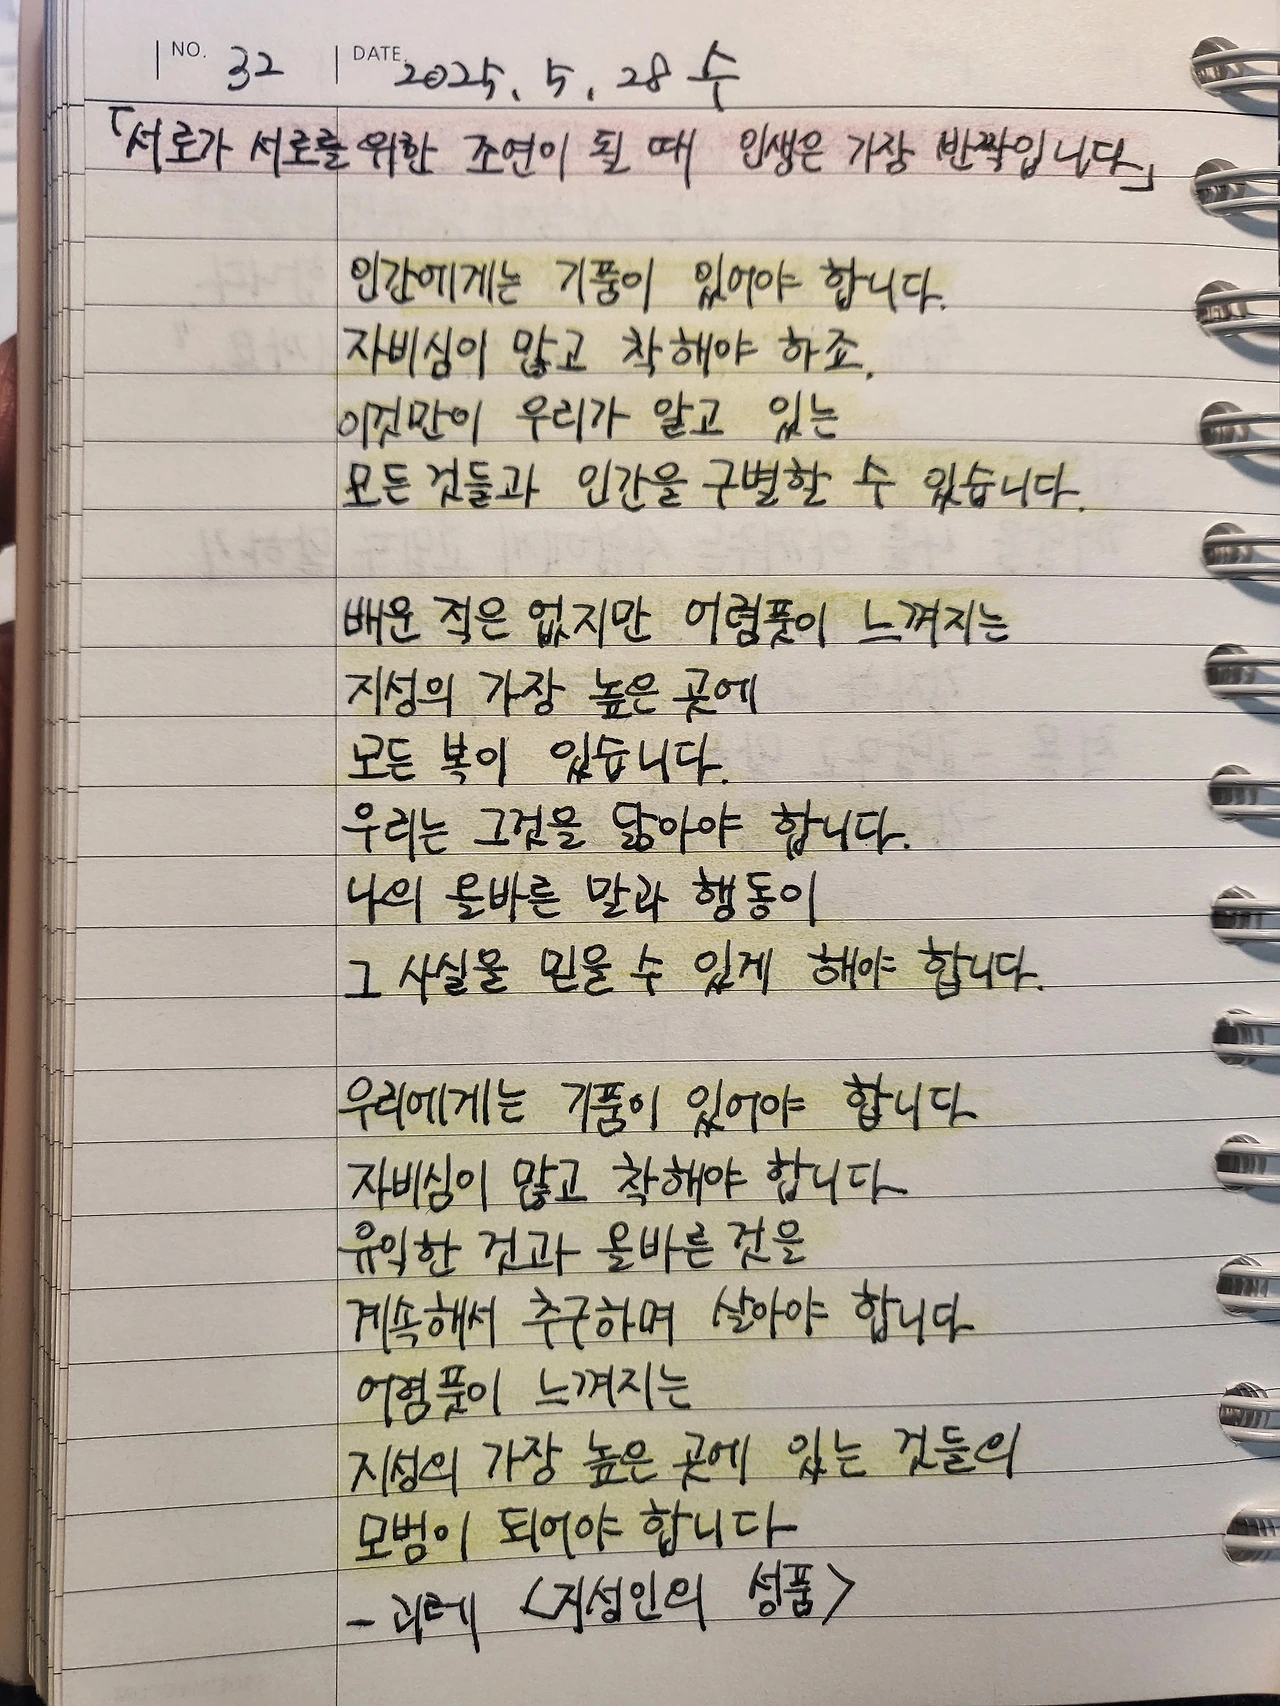 NO. 32 DATE. 2025. 5. 28 수
「서로가 서로를 위한 조연이 될 때 인생은 가장 반짝입니다」
인간에게는 기품이 있어야 합니다.
자비심이 많고 착해야 하죠.
이것만이 우리가 알고 있는
모든 것들과 인간을 구별할 수 있습니다.
배운 적은 없지만 어렴풋이 느껴지는
지성의 가장 높은 곳에
모든 복이 있습니다.
우리는 그것을 닮아야 합니다.
나의 올바른 말과 행동이
그 사실을 믿을 수 있게 해야 합니다.
우리에게는 기품이 있어야 합니다
자비심이 많고 착해야 합니다
유익한 것과 올바른 것을
계속해서 추구하며 살아야 합니다
어렴풋이 느껴지는
지성의 가장 높은 곳에 있는 것들의
모범이 되어야 합니다
- 괴테 <지성인의 성품>